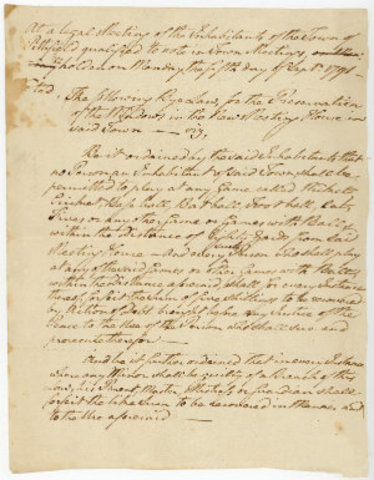 At a legal Meeting of the Inhabitants of the Town of
Pittsfield qualified to vote in Town Meetings,
holden on Monday the fifth day of Sept. 1791
Voted,
The following Bye Law, for the Preservation
of the Windows in the New Meeting House in
said Town — viz,
Be it ordained by the said Inhabitants that
no Person an Inhabitant of said Town shall be
permitted to play at any Game called Wicket,
Cricket, Base ball, Bat ball, Foot ball, Cats,
Fives or any other Game or Games with Balls,
within the distance of Eighty Yards from said
Meeting House — And every such Person who shall play
at any of the said Games or other Games with Balls
within the distance aforesaid, shall for every Instance
thereof, forfeit the Sum of five shillings to be recovered
by Action of Debt brought before any Justice of the
Peace to the Use of the Person who shall sue and
prosecute therefor —
And be it further ordained that in every Instance
where any Minor shall be guilty of a Breach of this
Law, his Parent, Master, Mistress or Guardian shall
forfeit the like Sum to be recovered in Manner and
to the Use aforesaid —